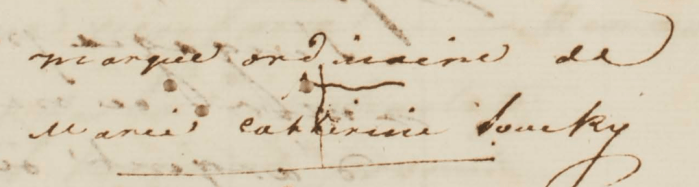 marque ordinaire de
Marie Catherine Soucky